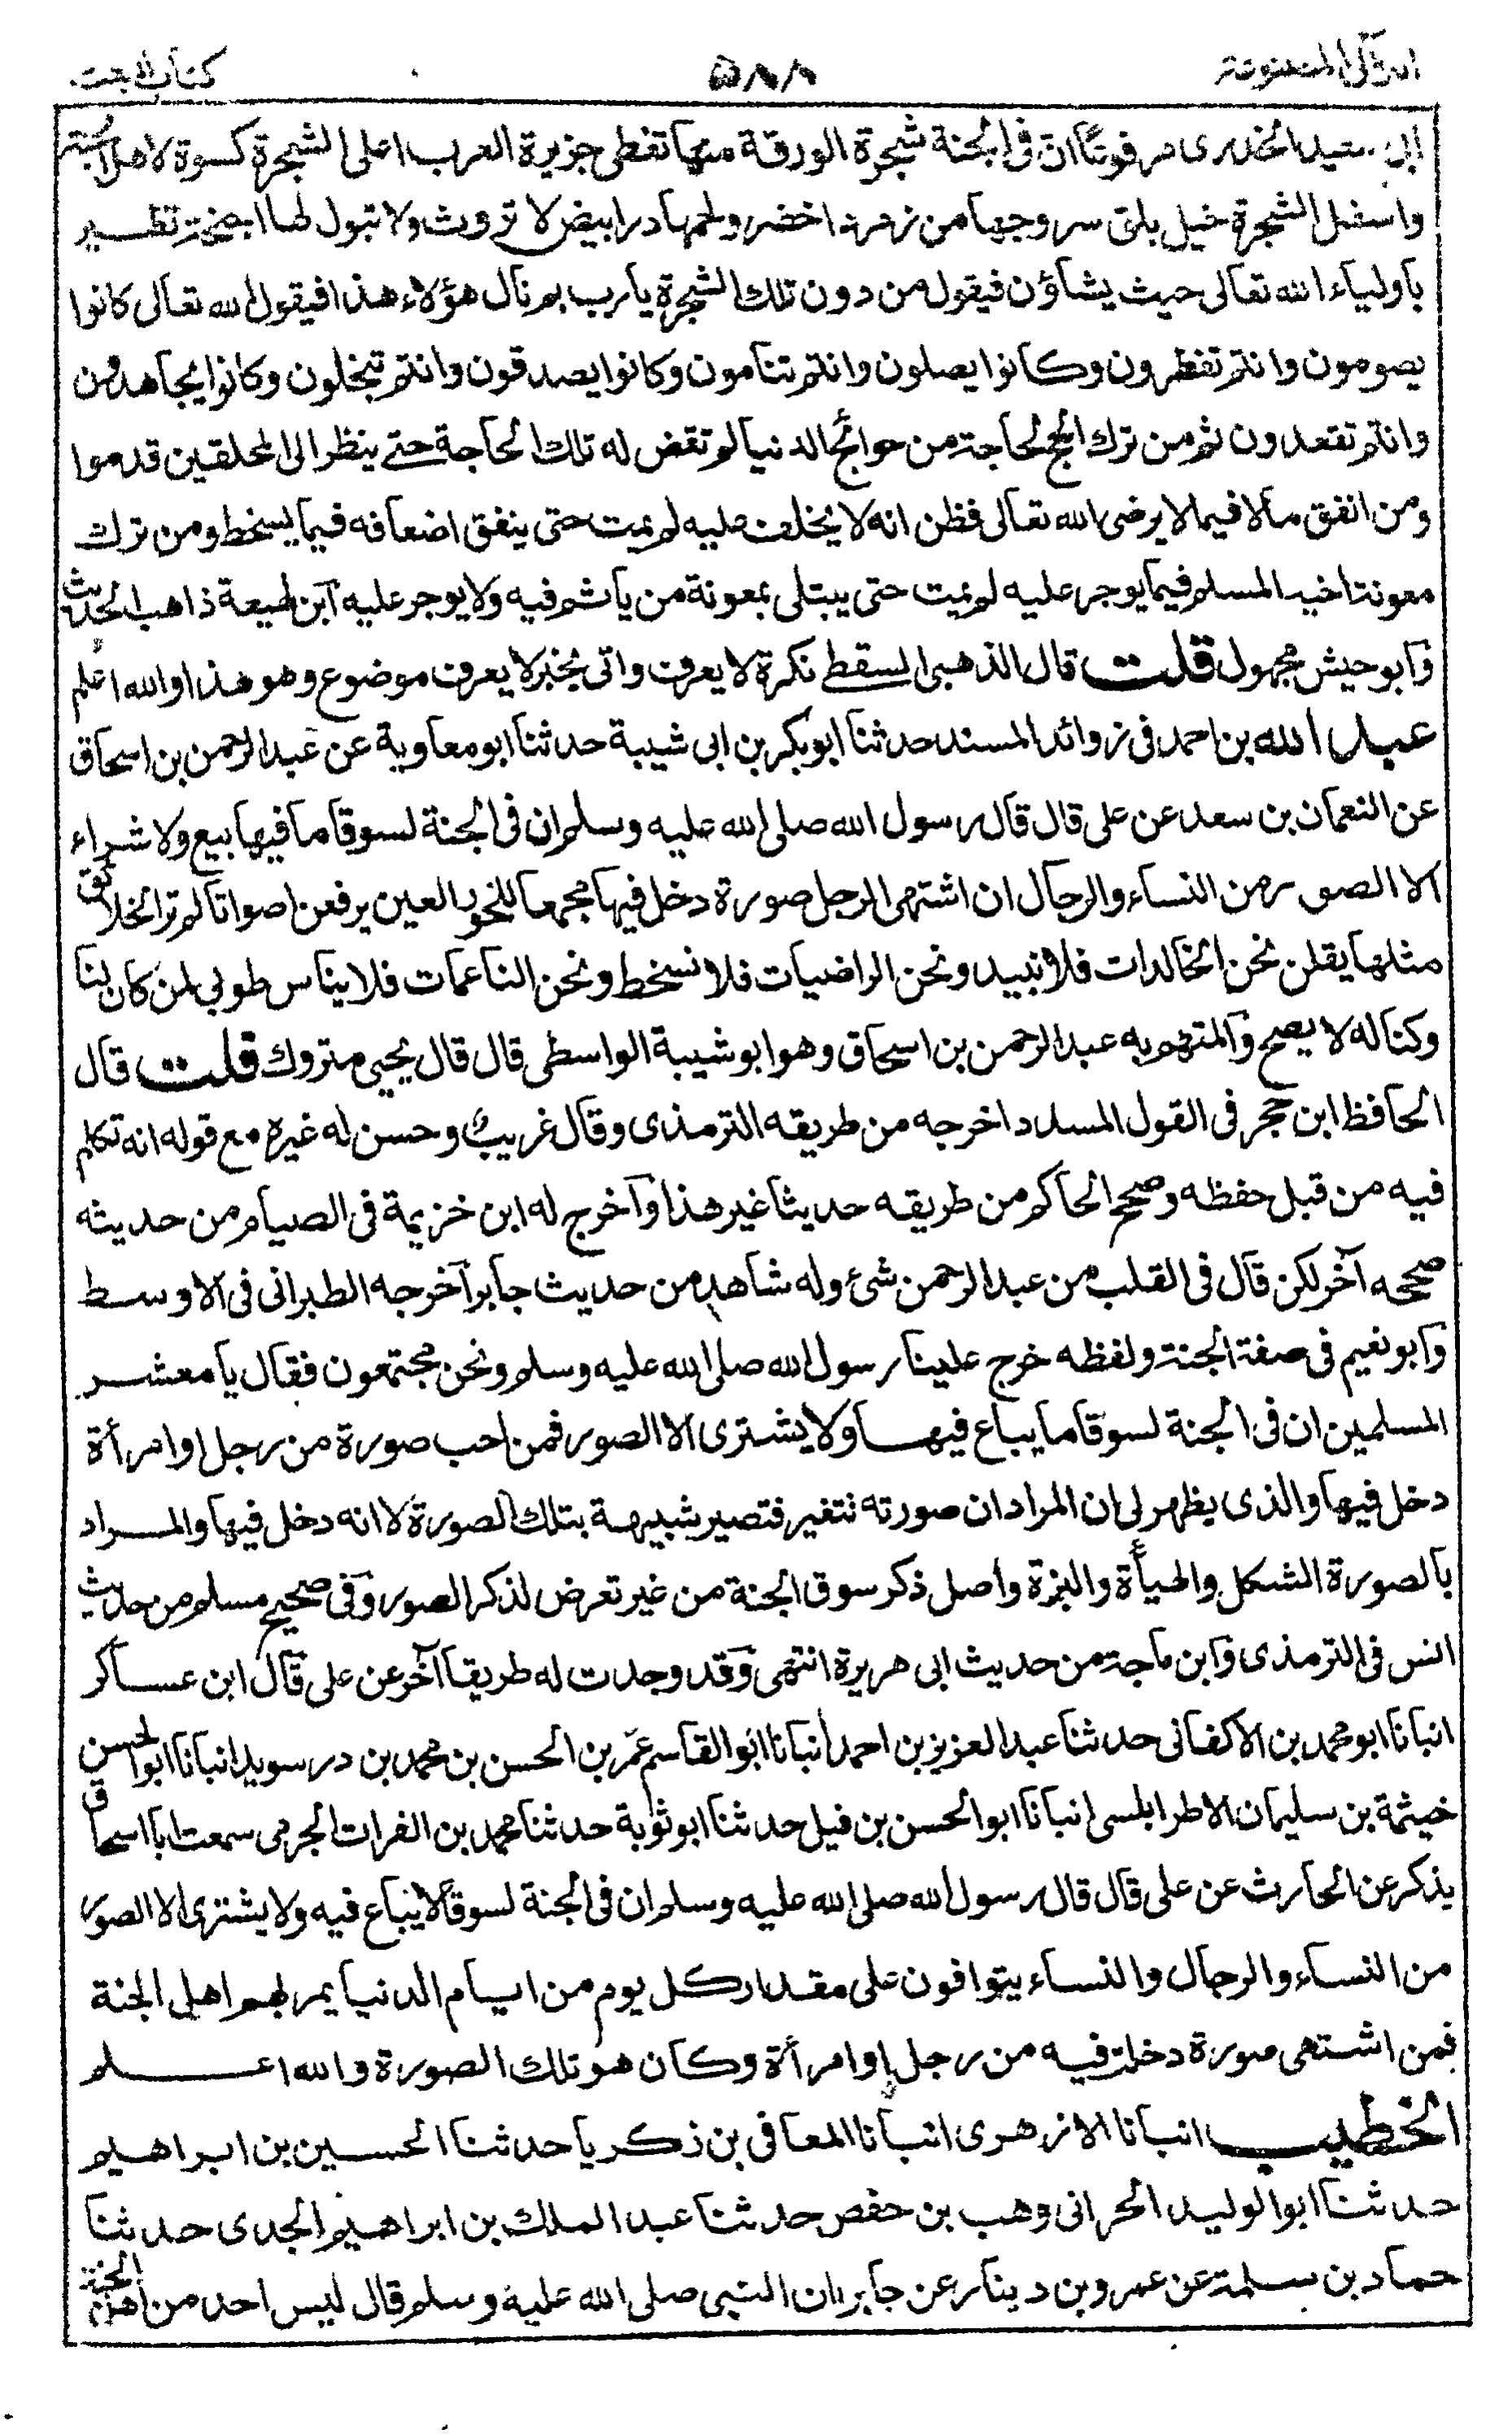 اللآلى المصنوعة
٥٨٨
كتاب البعث
ابى سعيد الخدرى مرفوعًا ان فى الجنة شجرة الورقة منها تغطى جزيرة العرب اعلى الشجرة كسوة لاهل الجنة
واسفل الشجرة خيل بلق سروجها من زمرد اخضر ولجمها در ابيض لا تروث ولا تبول لها اجنحة تطير
باولياء الله تعالى حيث يشاؤن فيقول من دون تلك الشجرة يا رب بم نال هؤلاء هذا فيقول الله تعالى كانوا
يصومون وانتم تفطرون وكانوا يصلون وانتم تنامون وكانوا يصدقون وانتم تبخلون وكانوا يجاهدون
وانتم تقعدون ثم من ترك الحج لحاجة من حوائج الدنيا لم تقض له تلك الحاجة حتے ينظر الى المحلقين قدموا
ومن انفق مالا فيما لا يرضى الله تعالى فظن انه لا يخلف عليه لم يمت حتى ينفق اضعافه فيما يسخط ومن ترك
معونة اخيه المسلم فيما يوجر عليه لم يمت حتى يبتلى بمعونة من ياثم فيه ولا يوجر عليه آبن لهيعة ذاهب الحديث
وآبو حيش مجهول قلت قال الذهبى السقطے نكرة لا يعرف واتى بخبر لا يعرف موضوع وهو هذا او الله اعلم
عبد الله بن احمد فى زوائد المسند حدثنا ابو بكر بن ابى شيبة حدثنا ابو معاوية عن عبد الرحمن بن اسحاق
عن النعمان بن سعد عن على قال قال رسول الله صلى الله عليه وسلم ان فى الجنة لسوقا ما فيها بيع ولا شراء
الا الصور من النساء والرجال ان اشتهى الرجل صورة دخل فيها مجمعا للحور العين يرفعن اصواتا لم تر الخلائق
مثلها يقلن نحن الخالدات فلا نبيد ونحن الراضيات فلا نسخط ونحن الناعمات فلا ينأس طوبى لمن كان لنا
وكنا له لا يصح وآلمتهم به عبد الرحمن بن اسحاق وهو ابو شيبة الواسطى قال قال يحيى متروك قلت قال
الحافظ ابن حجر فى القول المسدد اخرجه من طريقه الترمذى وقال غريب وحسن له غيره مع قوله انه تكلم
فيه من قبل حفظه وصحح الحاكم من طريقه حديثا غير هذا وآخرج له ابن خزيمة فى الصيام من حديثه
صححه آخر لكن قال فى القلب من عبد الرحمن شئ وله شاهد من حديث جابر آخرجه الطبرانى فى الاوسط
وآبو نعيم فى صفة الجنة ولفظه خرج علينا رسول الله صلى الله عليه وسلم ونحن مجتمعون فقال يا معشر
المسلمين ان فى الجنة لسوقا ما يباع فيها ولا يشترى الا الصور فمن احب صورة من رجل او امرأة
دخل فيها والذى يظهر لى ان المراد ان صورته تتغير فتصير شبيهة بتلك الصورة لا انه دخل فيها والمراد
بالصورة الشكل والهيأة والبزة واصل ذكر سوق الجنة من غير تعرض لذكر الصور وفى صحيح مسلم من حديث
انس فى الترمذى وآبن ماجة من حديث ابى هريرة انتهى وقد وجدت له طريقا آخر عن على قال ابن عساكر
انبانا ابو محمد بن الاكفانى حدثنا عبد العزيز بن احمد أنبانا ابو القاسم عمر بن الحسن بن محمد بن درسويد انبانا ابو الحسن
خيثمة بن سليمان الاطرابلسى انبانا ابو الحسن بن فيل حدثنا ابو ثوبة حدثنا محمد بن الفرات الجرمى سمعت ابا اسحاق
يذكر عن الحارث عن على قال قال رسول الله صلى الله عليه وسلم ان فى الجنة لسوقا لا يباع فيه ولا يشترى الا الصور
من النساء والرجال والنساء يتوافون على مقدار كل يوم من ايام الدنيا يمر بهم اهل الجنة
فمن اشتهى صورة دخلت فيه من رجل او امرأة وكان هو تلك الصورة والله اعلم
الخطيب انبانا الازهرى انبانا المعافى بن زكريا حدثنا الحسين بن ابراهيم
حدثنا ابو الوليد الحرانى وهب بن حفص حدثنا عبد الملك بن ابراهيم الجدى حدثنا
حماد بن سلمة عن عمرو بن دينار عن جابر ان النبى صلى الله عليه وسلم قال ليس احد من اهل الجنة